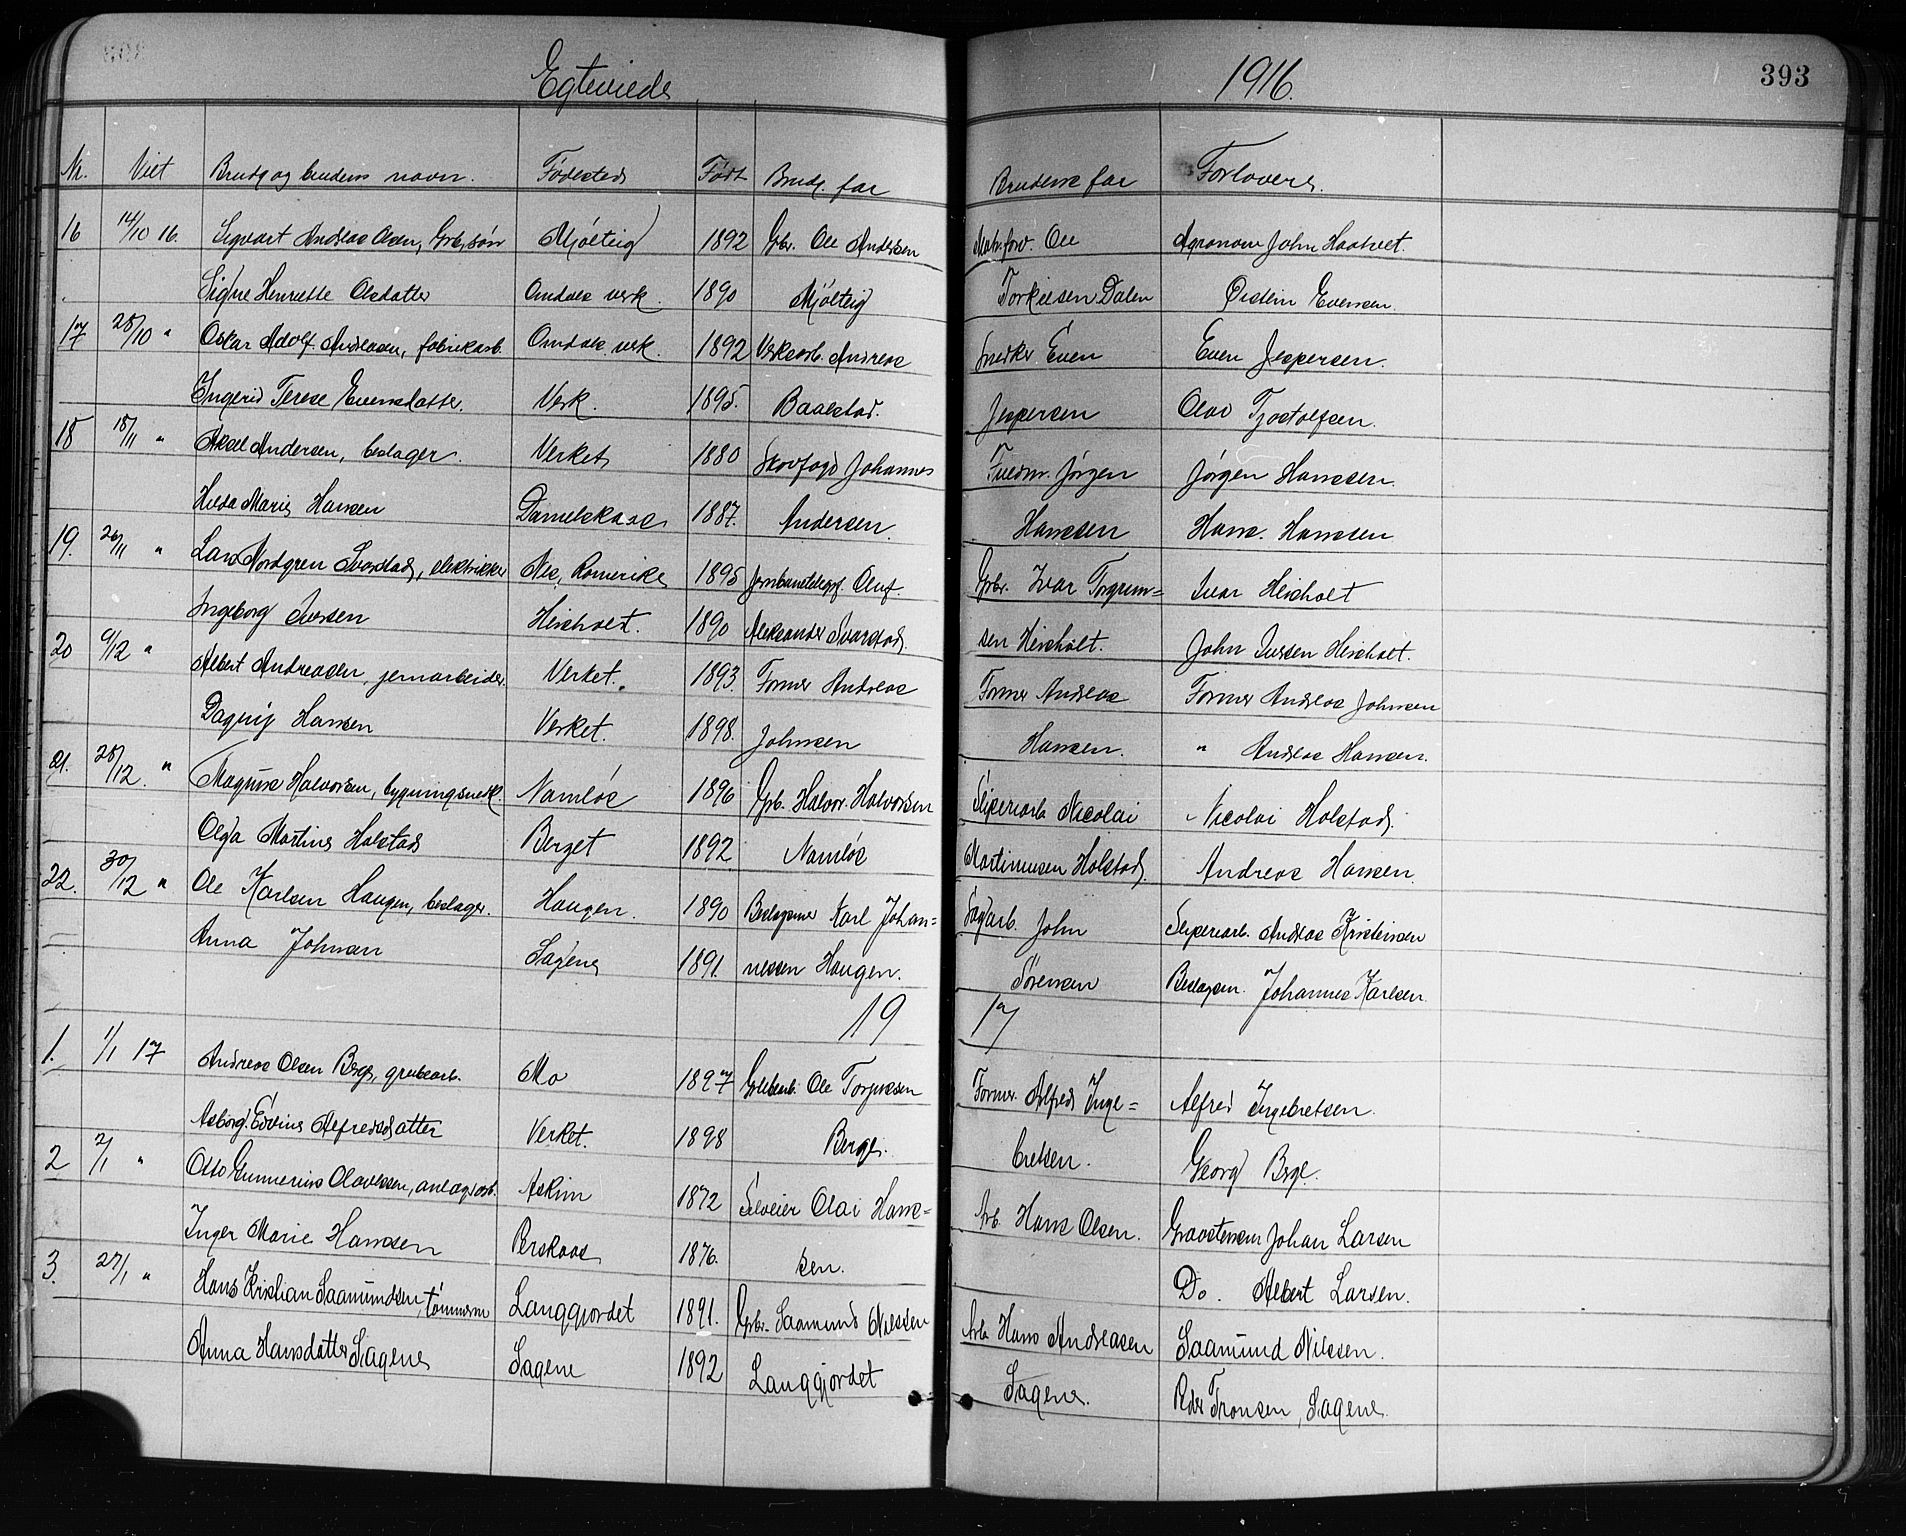 Egteviede 1916. 393
Nr. Viet Brudg og brudens navn. Fødested Født Brudg far Brudens far Forlovere.
16 14/10 16. Sigvart Andreas Olsen, Grbr.søn Mjölteig 1892 Gbr. Ole Andersen Ole Agronom John Haatvet.
Signe Henriette Olsdatter Omdals verk. 1890 Mjölteig Torkilsen Dalen Östein Evensen.
17 28/10 " Oskar Adolf Andreasen, fabrikarb. Omdals verk. 1892 Verksarb. Andreas Snedker Even Even Jespersen.
Ingerid Terese Evensdatter. Verk. 1895. Baalstad. Jespersen Olav Tjostolfsen.
18 18/11 " Aksel Andersen, beslager. Verket 1880 Skovfogd Johannes Fuldm. Jørgen Jørgen Hanssen.
Hilda Marie Hansen Danielskaas 1887. Andersen. Hanssen Hans. Hanssen
19. 26/11 " Lars Nordgren Svarstad, elektriker Nes, Romerike 1895 Jernbanetelegrf. Oluf Grbr. Ivar Torgrim= Ivar Heiaholt
Ingeborg Iversen Heiaholt. 1890 Aleksander Svarstad. sen Heiaholt. John Iversen Heiaholt.
20 9/12 " Albert Andreasen, jernarbeider. Verket. 1893. Former Andreas Former Andreas Former Andreas Johnsen
Dagny Hansen Verket. 1898. Johnsen Hansen. " Andreas Hansen.
21. 28/12. " Magnus Halvorsen, bygningssnedk. Namløs 1896 Gbr. Halvor. Halvorsen Sliperiarb. Nicolai Nicolai Holstad.
Olga Martine Holstad Berget 1892 Namløs Martinussen Holstad. Andreas Hansen.
22. 30/12 " Ole Karlsen Haugen, beslager. Haugen. 1890 Beslagsmr Karl Johan= Sagarb. John Sliperiarb. Andreas Kristensen
Anna Johnsen Sagene 1891. nessen Haugen. Sörensen Beslagsm. Johannes Karlsen.
19 17
1. 1/1 17 Andreas Olsen Berge, grubearb. Mo 1897 Grubearb. Ole Torjussen Former. Alfred Inge= Alfred Ingebretsen.
Asborg Edvine Alfredsdatter Verket. 1898 Berge. bretsen. Georg Berge.
2 2/1 " Otto Gunnerius Olavessen, anlægsarb. Askim 1872 Selveier Olai Hans= Arb. Hans Olsen. Johan Larsen
Inger Marie Hanssen Berskaas 1876. sen. Do. Albert Larsen.
3. 27/1 " Hans Kristian Saamundsen, tömmerm Langgjordet 1891. Gbr. Saamund Nilssen Arb Hans Andreasen Saamund Nilssen.
Anna Hansdatter Sagene Sagene 1892 Langgjordet Sagene. Peder Tronsen, Sagene.